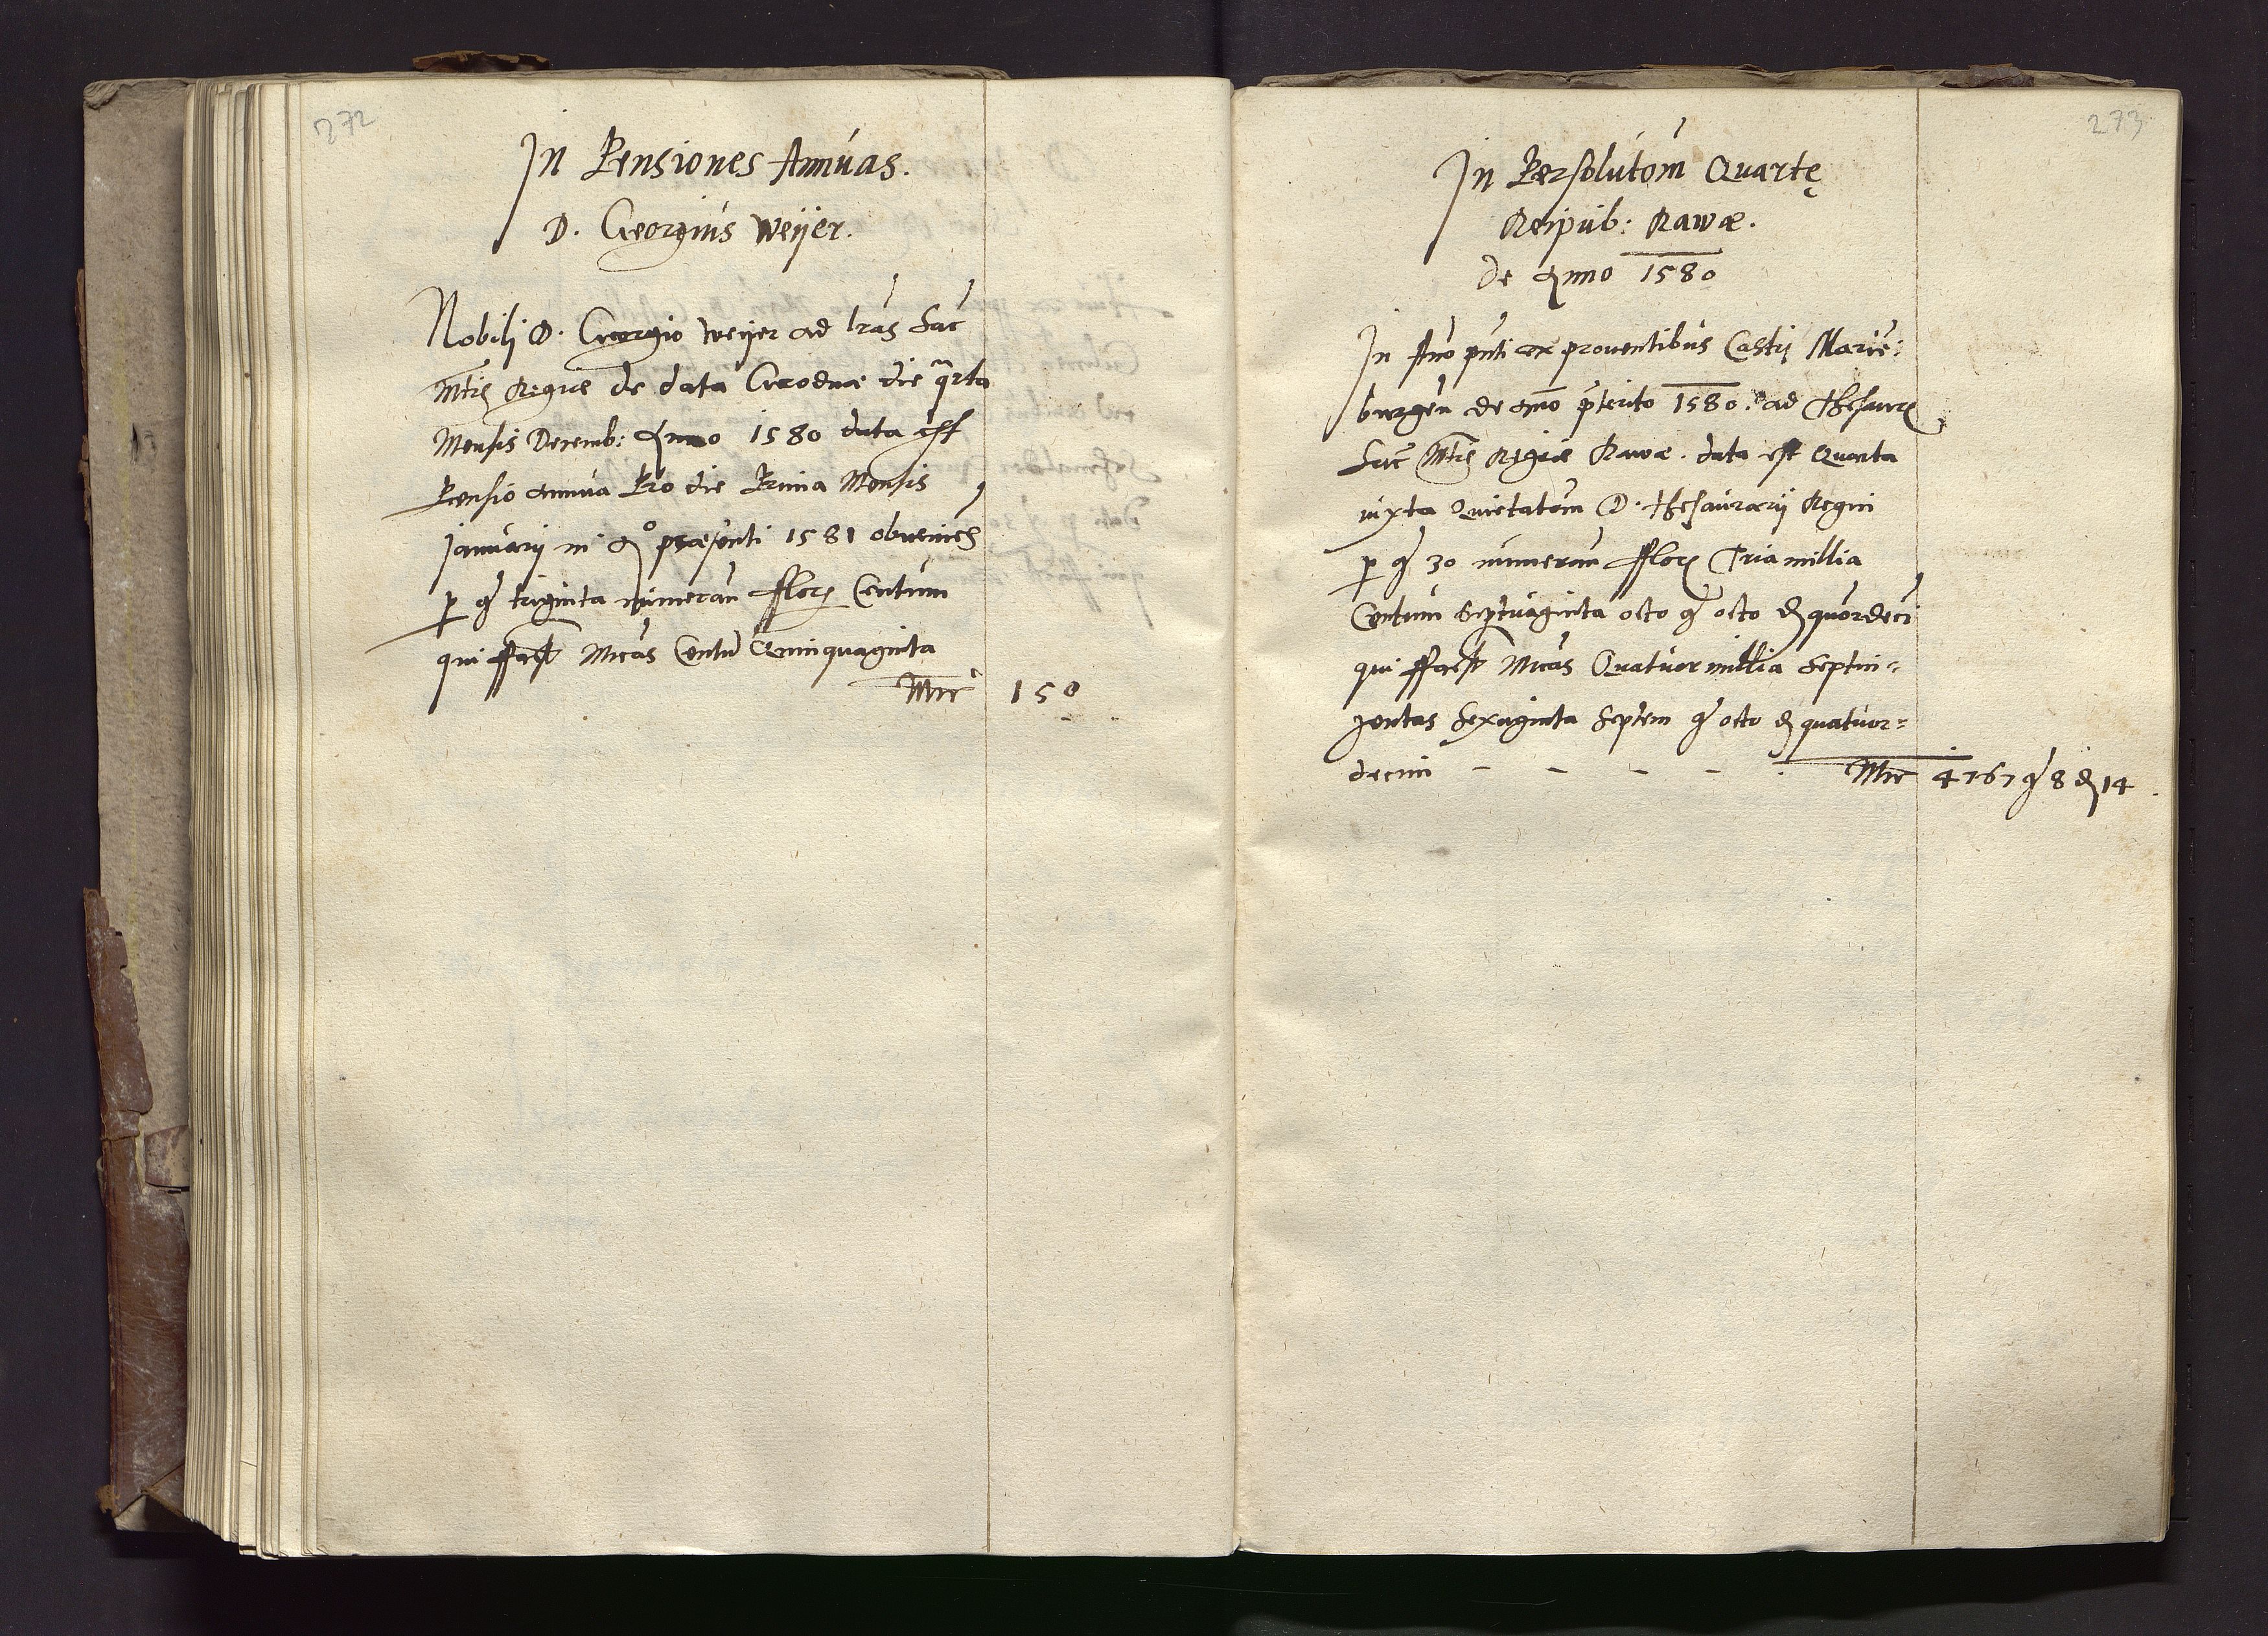 272
In Pensiones Annuas.
D. Georgius Weÿer.
Nobilj D. Georgio Weÿer ad lras Sac
Mtis Regiae de data Grodnae die qrta
Mensis Decemb: Anno 1580 data est
Pensio annua Pro die Prima Mensis
Januarij in Ao praesenti 1581 obueniens
p gr triginta numeran fflor Centum
qui ffact Mrcas Centu Quinquaginta
Mrc 150
273
In Persolutom Quartę
Reipub: Rawae.
de Anno 1580
In Ano pnti ex prouentibus Castri Marie:
burgen de ano pterito 1580. ad Thesaur
Sac Mtis Regiae Rawae. data est Quarta
iuxta Quietatom D. Thesaurarij Regni
p gr 30 numeran fflor Tria millia
Centum Septuaginta octo gr octo d quordeci
qui ffact Mrcas Quatuor millia Septin=
gentas Sexaginta Septem gr octo d quatuor=
decim - - - - Mrc 4767 gr 8 d 14